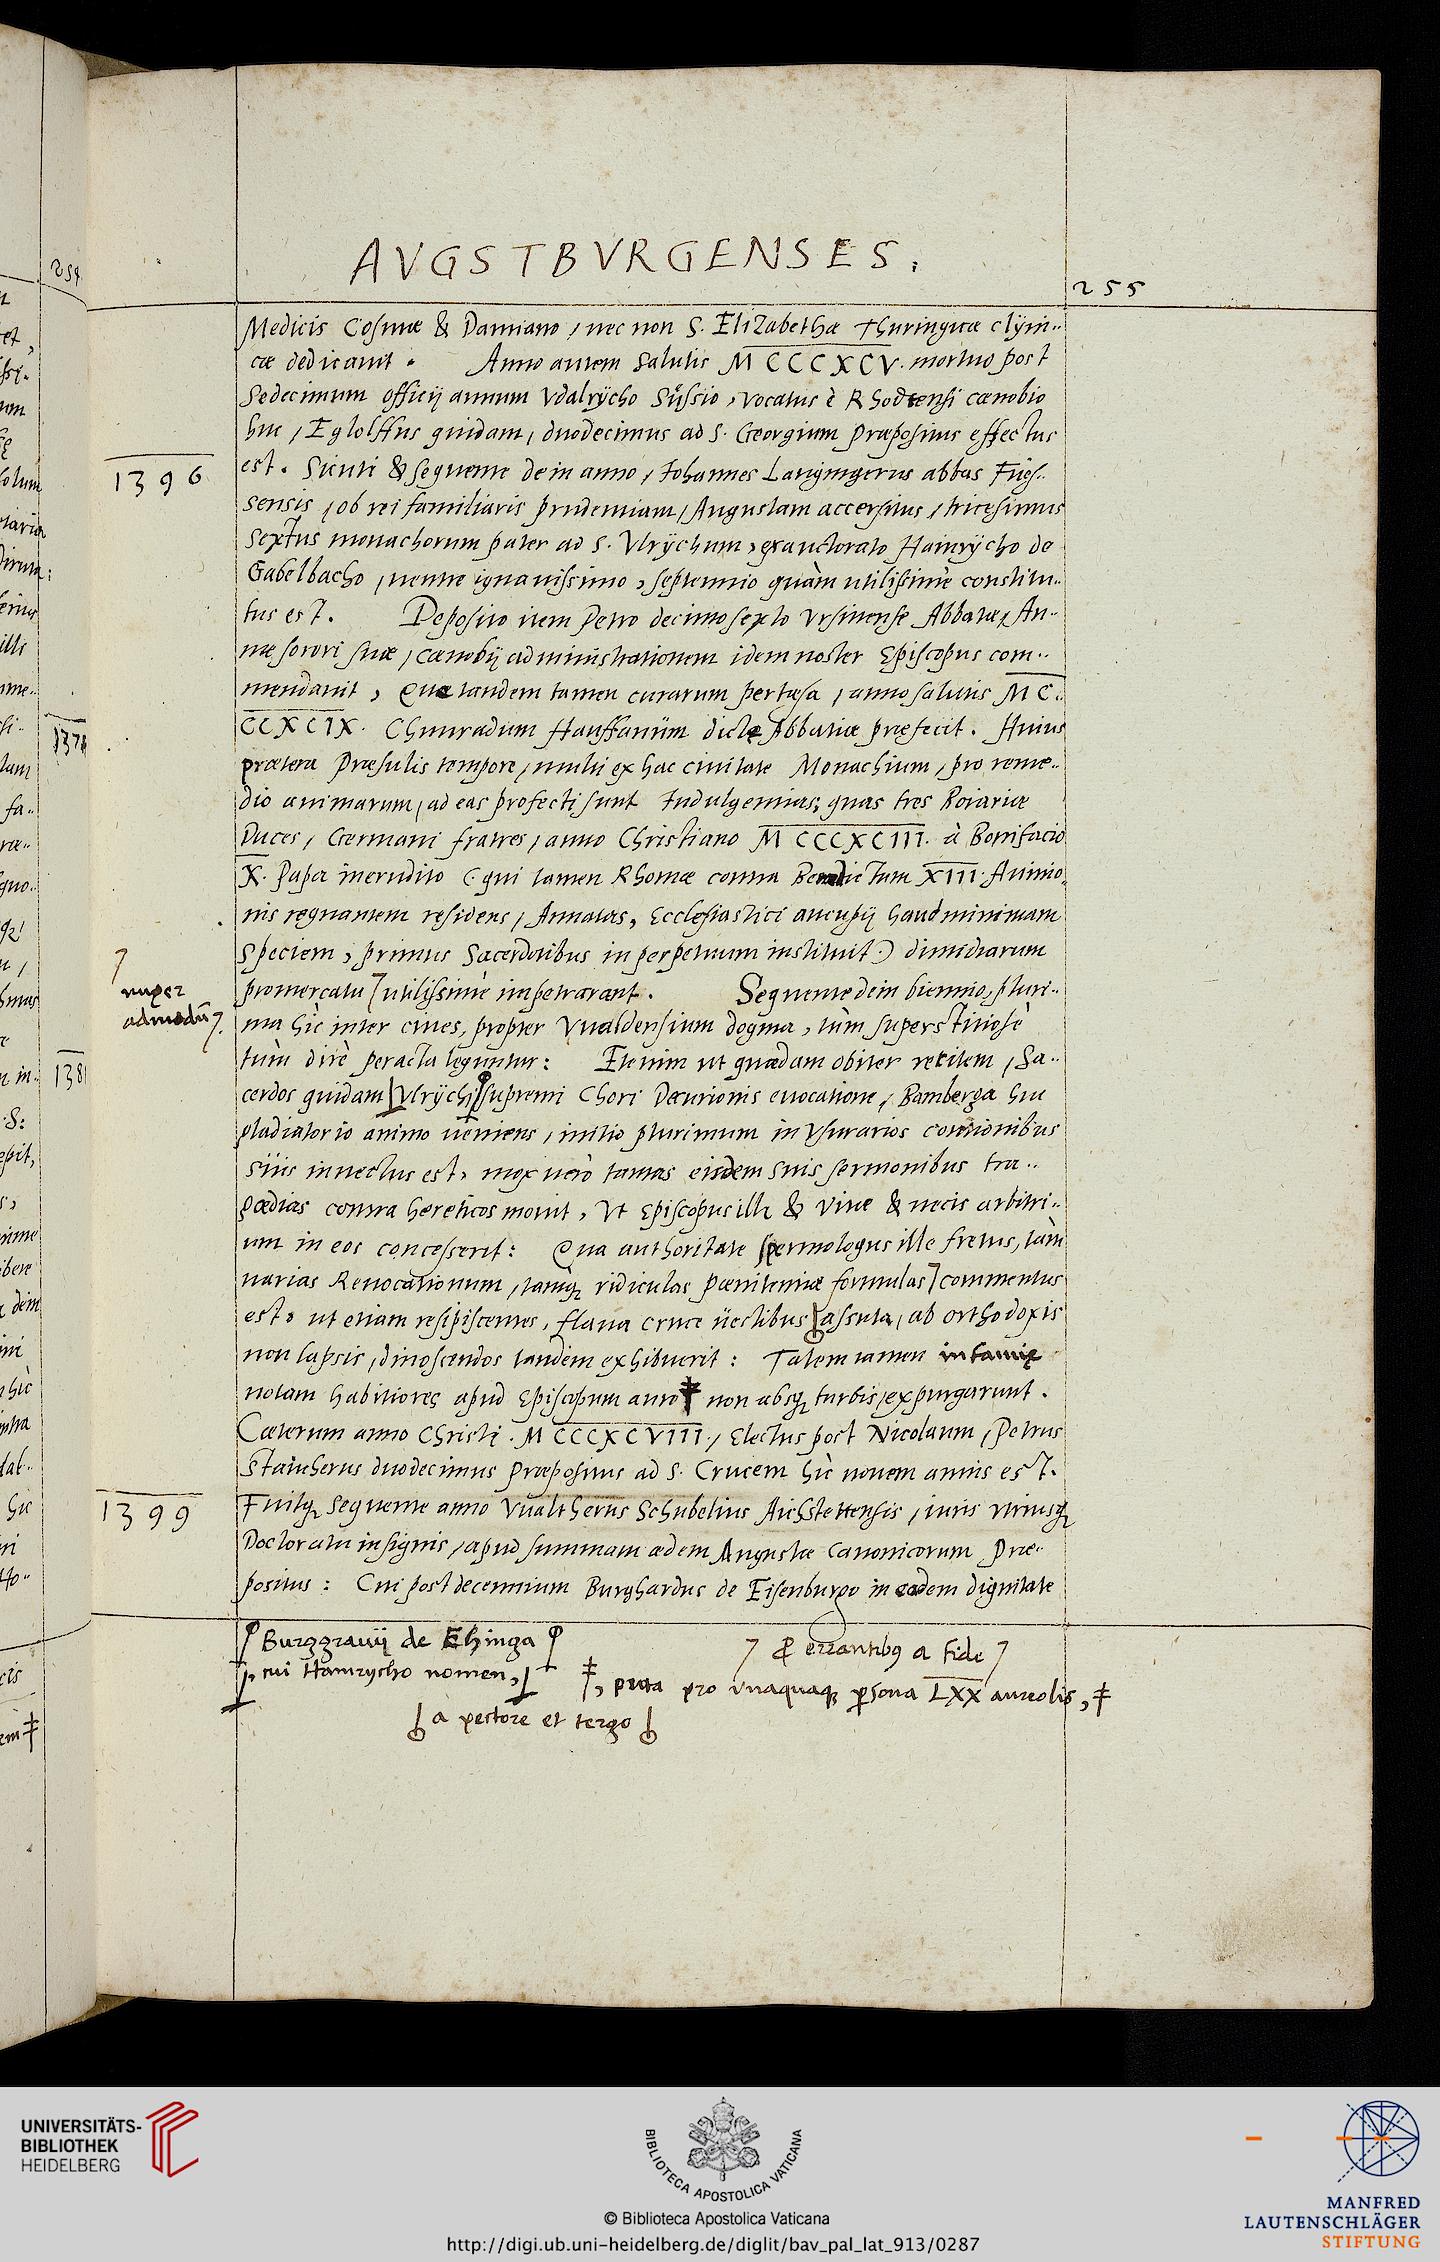 AVGSTBVRGENSES.
255
Medicis Cosmæ & Damiano, nec non S. Elizabethæ Thuringicæ clÿni..
cæ dedicauit. Anno autem Salutis MCCCXCV. mortuo post
Sedecimum officij annum Vdalrÿcho Süssio, vocatus è Rhodtensi cænobio
huc, Eglolffus quidam, duodecimus ad S. Georgium Præpositus effectus
1396
est. Sicuti & sequente dein anno, Johannes Langingerus abbas Fües..
sensis, ob rei familiaris prudentiam, Augustam accersitus, tricesimus
Sextus monachorum pater ad S. Vlrÿchum, exauctorato Hainrÿcho de
Gabelbacho, uentre ignauissimo, septennio quàm utilissimè constitu..
tus est. Deposito item Petro decimosexto Vrsinense Abbate, An..
næ sorori suæ, cænobij administrationem idem noster Episcopus com..
mendauit, Quæ tandem tamen curarum pertæsa, anno salutis MC.
CCXCIX. Chunradum Hauffanüm dictę Abbatiæ præfecit. Huius
prætera Præsulis tempore, multi ex hac ciuitate Monachium, pro reme..
dio animarum, ad eas profecti sunt Indulgentias: quas tres Boiariæ
Duces, Germani fratres, anno Christiano MCCCXCIII. à Bonifacio
X. Papa inerudito (qui tamen Rhomæ contra Benedictum XIII. Auinio..
nis regnantem residens, Annatas, Ecclesiastici aucupij haud minimam
Speciem, primus Sacerdotibus in perpetuum instituit) dimidiarum
nuper
admodū
promercatu utilissimè impetrarant. Sequente dein biennio, pluri..
ma hìc inter ciues, propter Vualdensium dogma, tùm superstitiosè
tùm dirè peracta leguntur: Etenim ut quædam obiter recitem, Sa..
cerdos quidam Vlrÿchi supremi Chori Decurionis euocatione, Bamberga huc
gladiatorio animo ueniens, initio plurimum in Vsurarios contionibus
Suis inuectus est, mox uerò tantas eisdem suis sermonibus tra..
gædias contra hereticos mouit, Vt Episcopus illi & Vitæ & necis arbitri..
um in eos concesserit: Qua authoritate spermologus ille fretus, tàm
uarias Reuocationum, tamq̃ ridiculas pænitentiæ formulas commentus
est, ut etiam resipiscentes, flaua cruce uestibus assuta, ab orthodoxis
non lapsis, dinoscendos tandem exhibuerit: Talem tamen infamię
notam habitiores apud Episcopum auro non absq̃ turbis, expurgarunt.
Cæterum anno Christi. MCCCXCVIII., Electus post Nicolaum, Petrus
Staincherus duodecimus Præpositus ad S. Crucem hìc nouem annis est.
1399
Fuitq̃ sequente anno Vualtherus Schubelius Aichstettensis, iuris utriusq̃
Doctoratu insignis, apud summam ædem Augustæ Canonicorum Præ..
positus: Cui post decennium Burghardus de Eisenburgo in eadem dignitate
Burggrauij de Ehinga
, cui Hainrycho nomen,
ꝓ errantibꝰ a fide
, puta pro vnaquaq̃ ꝑsona LXX aureolis,
a pectore et tergo
254
1381
UNIVERSITÄTS-
BIBLIOTHEK
HEIDELBERG
BIBLIOTECA APOSTOLICA VATICANA
© Biblioteca Apostolica Vaticana
http://digi.ub.uni-heidelberg.de/diglit/bav_pal_lat_913/0287
MANFRED
LAUTENSCHLÄGER
STIFTUNG